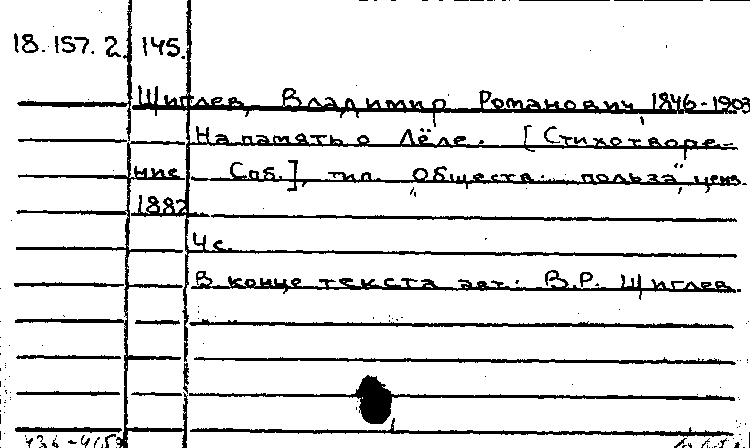 18.157.2 145.
Щиглев, Владимир Романович, 1846-1903
На память о Лёле. [Стихотворе-
ние Спб.], тип. „Обществ. польза", ценз.
1882
4 с.
В конце текста авт.: В.Р. Щиглев.